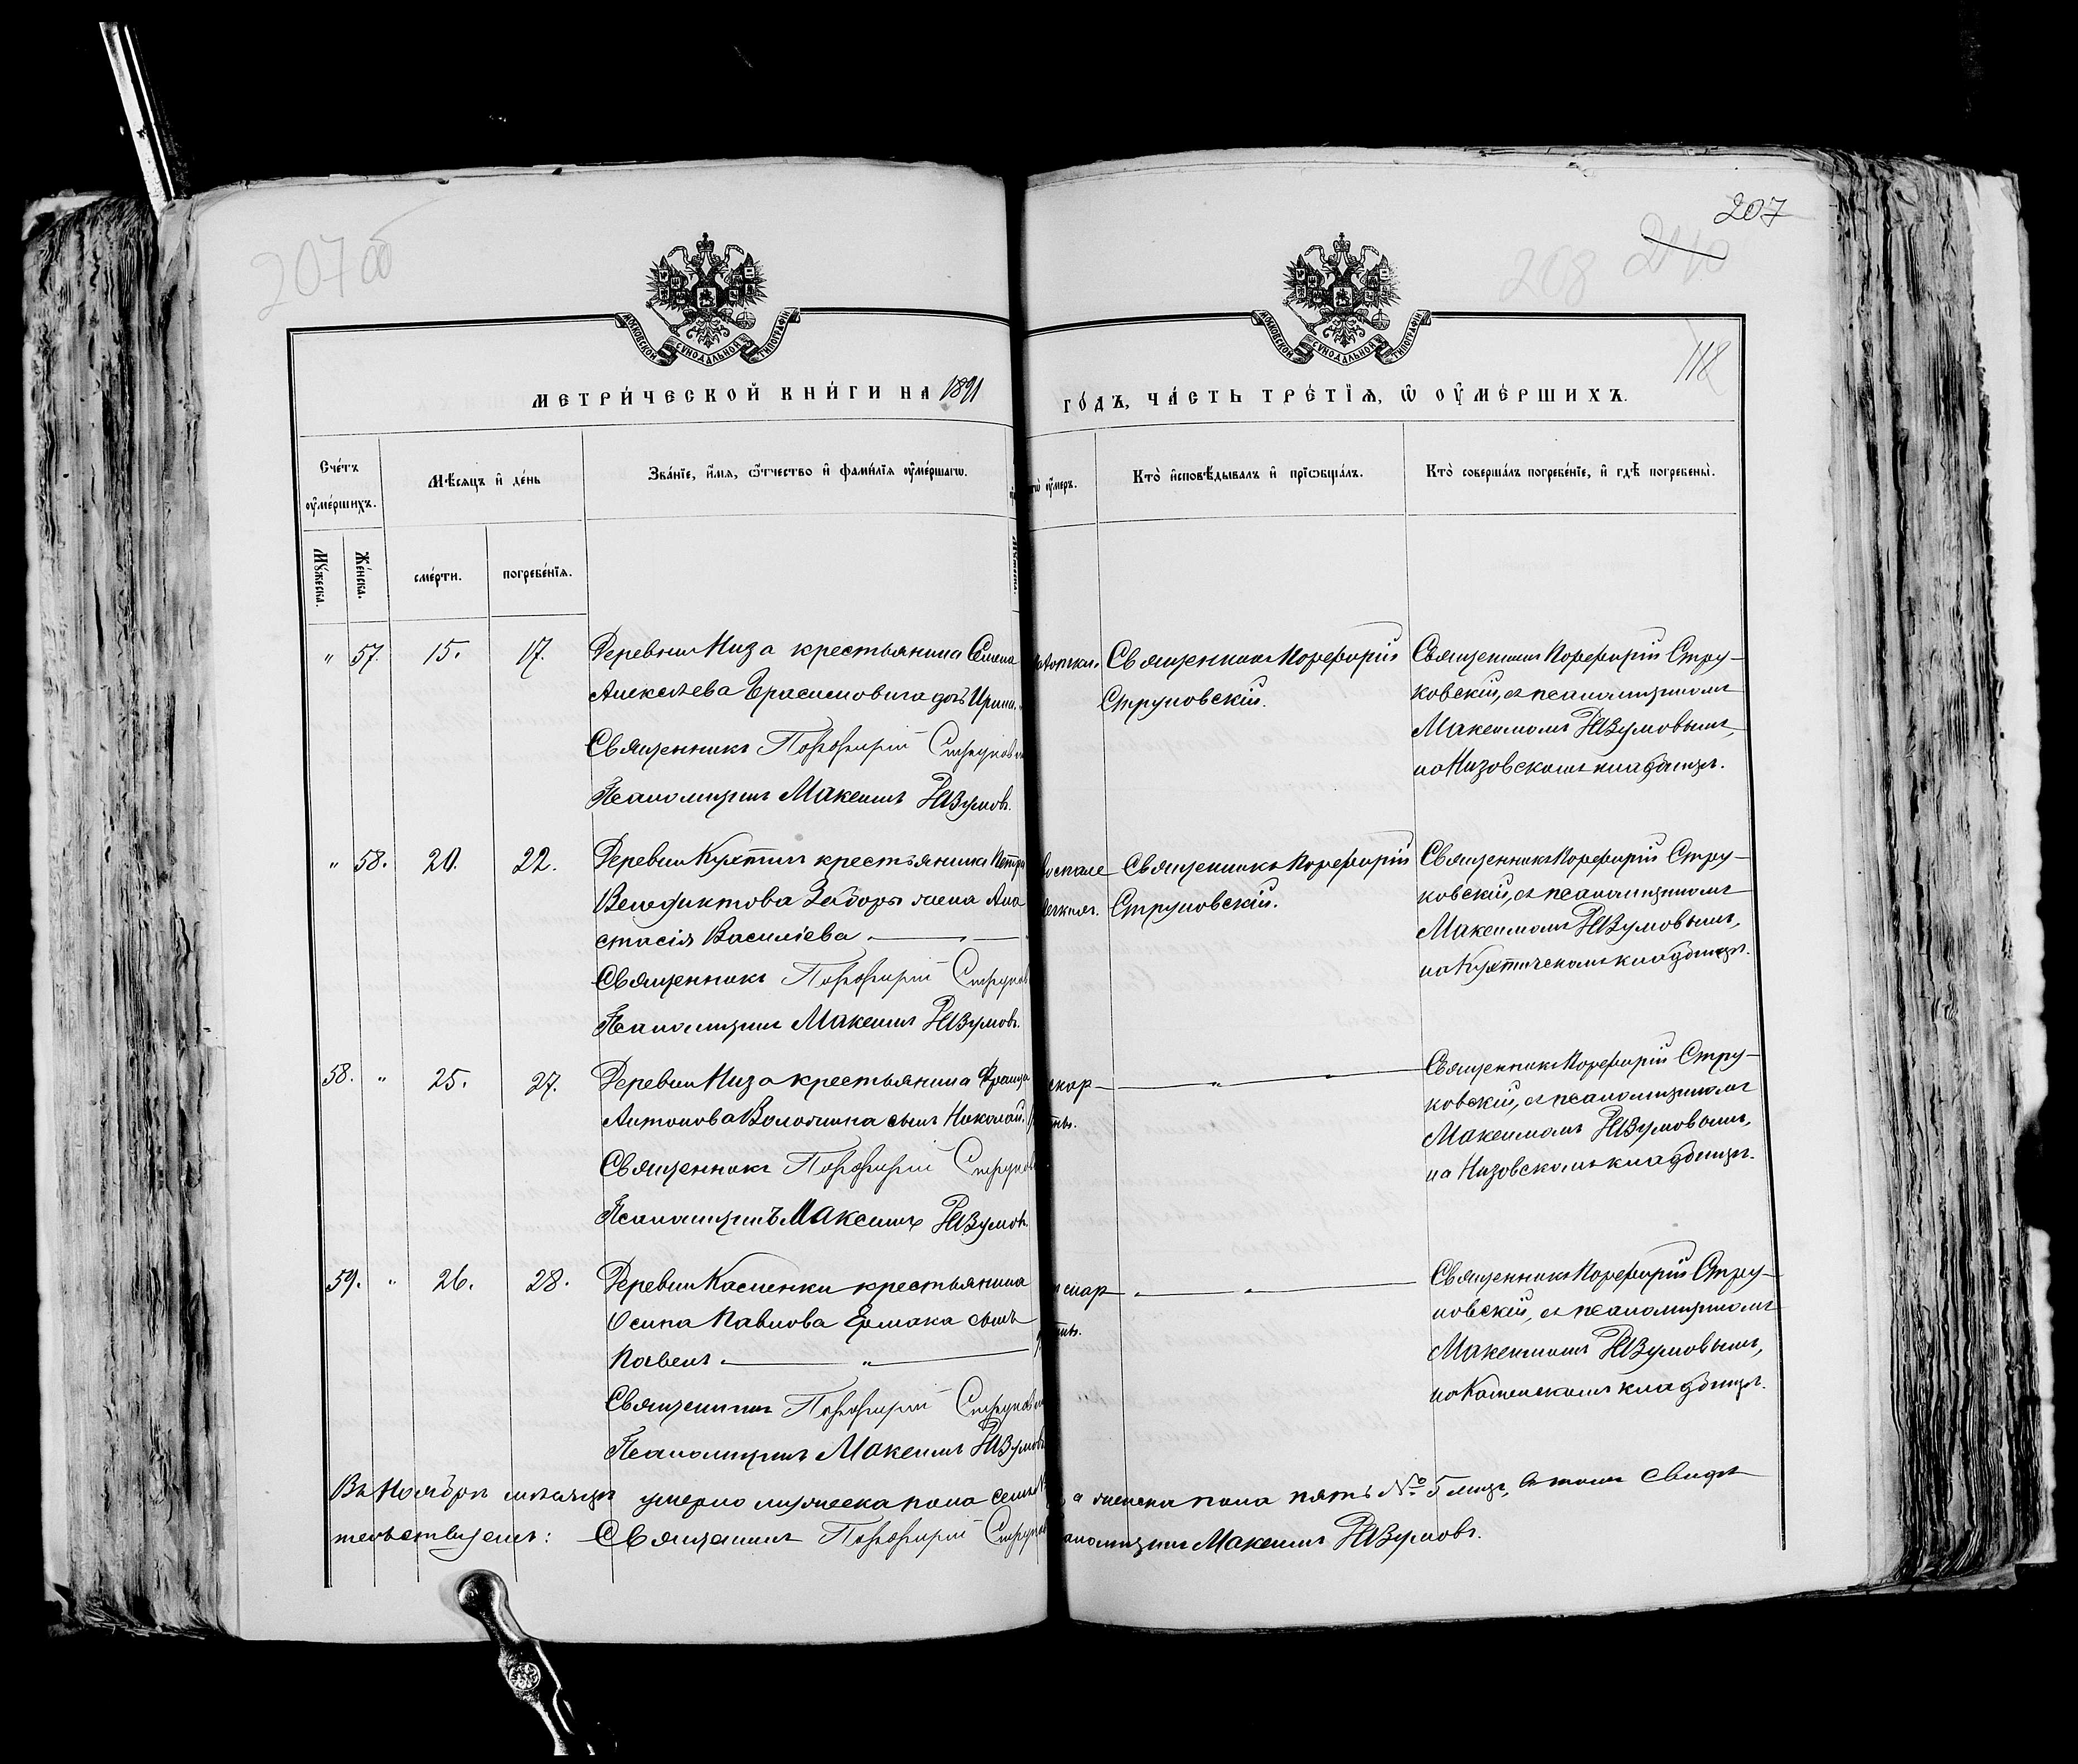 207 об
207
240
208
118
МОСКОВСКОЙ СѴНОДАЛЬНОЙ ТИПОГРАФІИ
МОСКОВСКОЙ СѴНОДАЛЬНОЙ ТИПОГРАФІИ
МЕТРИ́ЧЕСКОЙ КНИ́ГИ НА 1891
ГО́ДЪ, ЧА́СТЬ ТРЕ́ТІѦ, Ѡ ОУМЕ́РШИХЪ.
Сче́тъ оумершихъ.
Мꙋжеска.
Же́нска.
Мѣсяцъ и де́нь
сме́рти.
погребе́нїѧ.
Зва́нїе, и́мѧ, ѻ҆́тчество и фами́лїѧ оумершагѡ.
оумеръ.
Кто̀ исповѣ́дывалъ и прїѡбща́лъ.
Кто̀ соверша́лъ погребе́нїе, и гдѣ̀ погребены̀.
" 57. 15. 17.
Деревни Низа крестьянина Семена
Алексѣева Герасимовича дочь Ирина.
Священникъ Порфирій Струков
Псаломщикъ Максимъ Разумовъ.
Священникъ Порфирій
Струковскій.
Священникъ Порфирій Стру-
ковскій, съ псаломщикомъ
Максимомъ Разумовымъ,
на Низовскомъ кладбищѣ.
" 58. 20. 22.
Деревни Кухтичи крестьянина Петра
Венедиктова Заборы жена Ана
стасія Василіева
Священникъ Порфирій Струков
Псаломщикъ Максимъ Разумовъ.
воспале
легкихъ.
Священникъ Порфирій
Струковскій.
Священникъ Порфирій Стру-
ковскій, съ псаломщикомъ
Максимомъ Разумовымъ,
на Кухтическомъ кладбищѣ.
58. " 25. 27.
Деревни Низа крестьянина Франца
Антонова сынъ Николай.
Священникъ Порфирій Струков
Псаломщикъ Максимъ Разумовъ.
скар
" "
Священникъ Порфирій Стру-
ковскій, съ псаломщикомъ
Максимомъ Разумовымъ,
на Низовскомъ кладбищѣ.
59. " 26. 28.
Деревни Каменки крестьянина
Осипа Павлова Ермака сынъ
Павелъ "
Священникъ Порфирій Струков
Псаломщикъ Максимъ Разумовъ
" "
Священникъ Порфирій Стру-
ковскій, съ псаломщикомъ
Максимомъ Разумовымъ,
на Каменскомъ кладбищѣ.
Въ Ноябрѣ мѣсяцѣ умерло мужеска пола семь а женска пола пять № 5 лицъ, въ томъ свидѣ
тельствуемъ: Священникъ Порфирій Струков аломщикъ Максимъ Разумовъ.